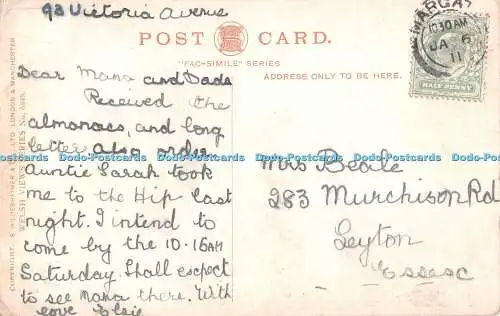 93 Victoria Avenue
POST CARD.
"FAC-SIMILE" SERIES
ADDRESS ONLY TO BE HERE.
MARGAT
10 30 AM
JA 6
11
HALF PENNY
Dear Mama and Dada
Received the
almonacs, and long
letter also order
Auntie Sarah took
me to the Hip last
night. I intend to
come by the 10.15AM
Saturday. Shall escpect
to see Mama there. With
love Elsie
Mrs Beale
283 Murchison Rd
Leyton
Essesc
COPYRIGHT. S. HILDESHEIMER & CO. LTD. LONDON & MANCHESTER
WELSH VIEWS SERIES No.
Dodo-Postcards Dodo-Postcards Dodo-Postcards Dodo-Postcards Dodo-Postcards Dodo-Postcards